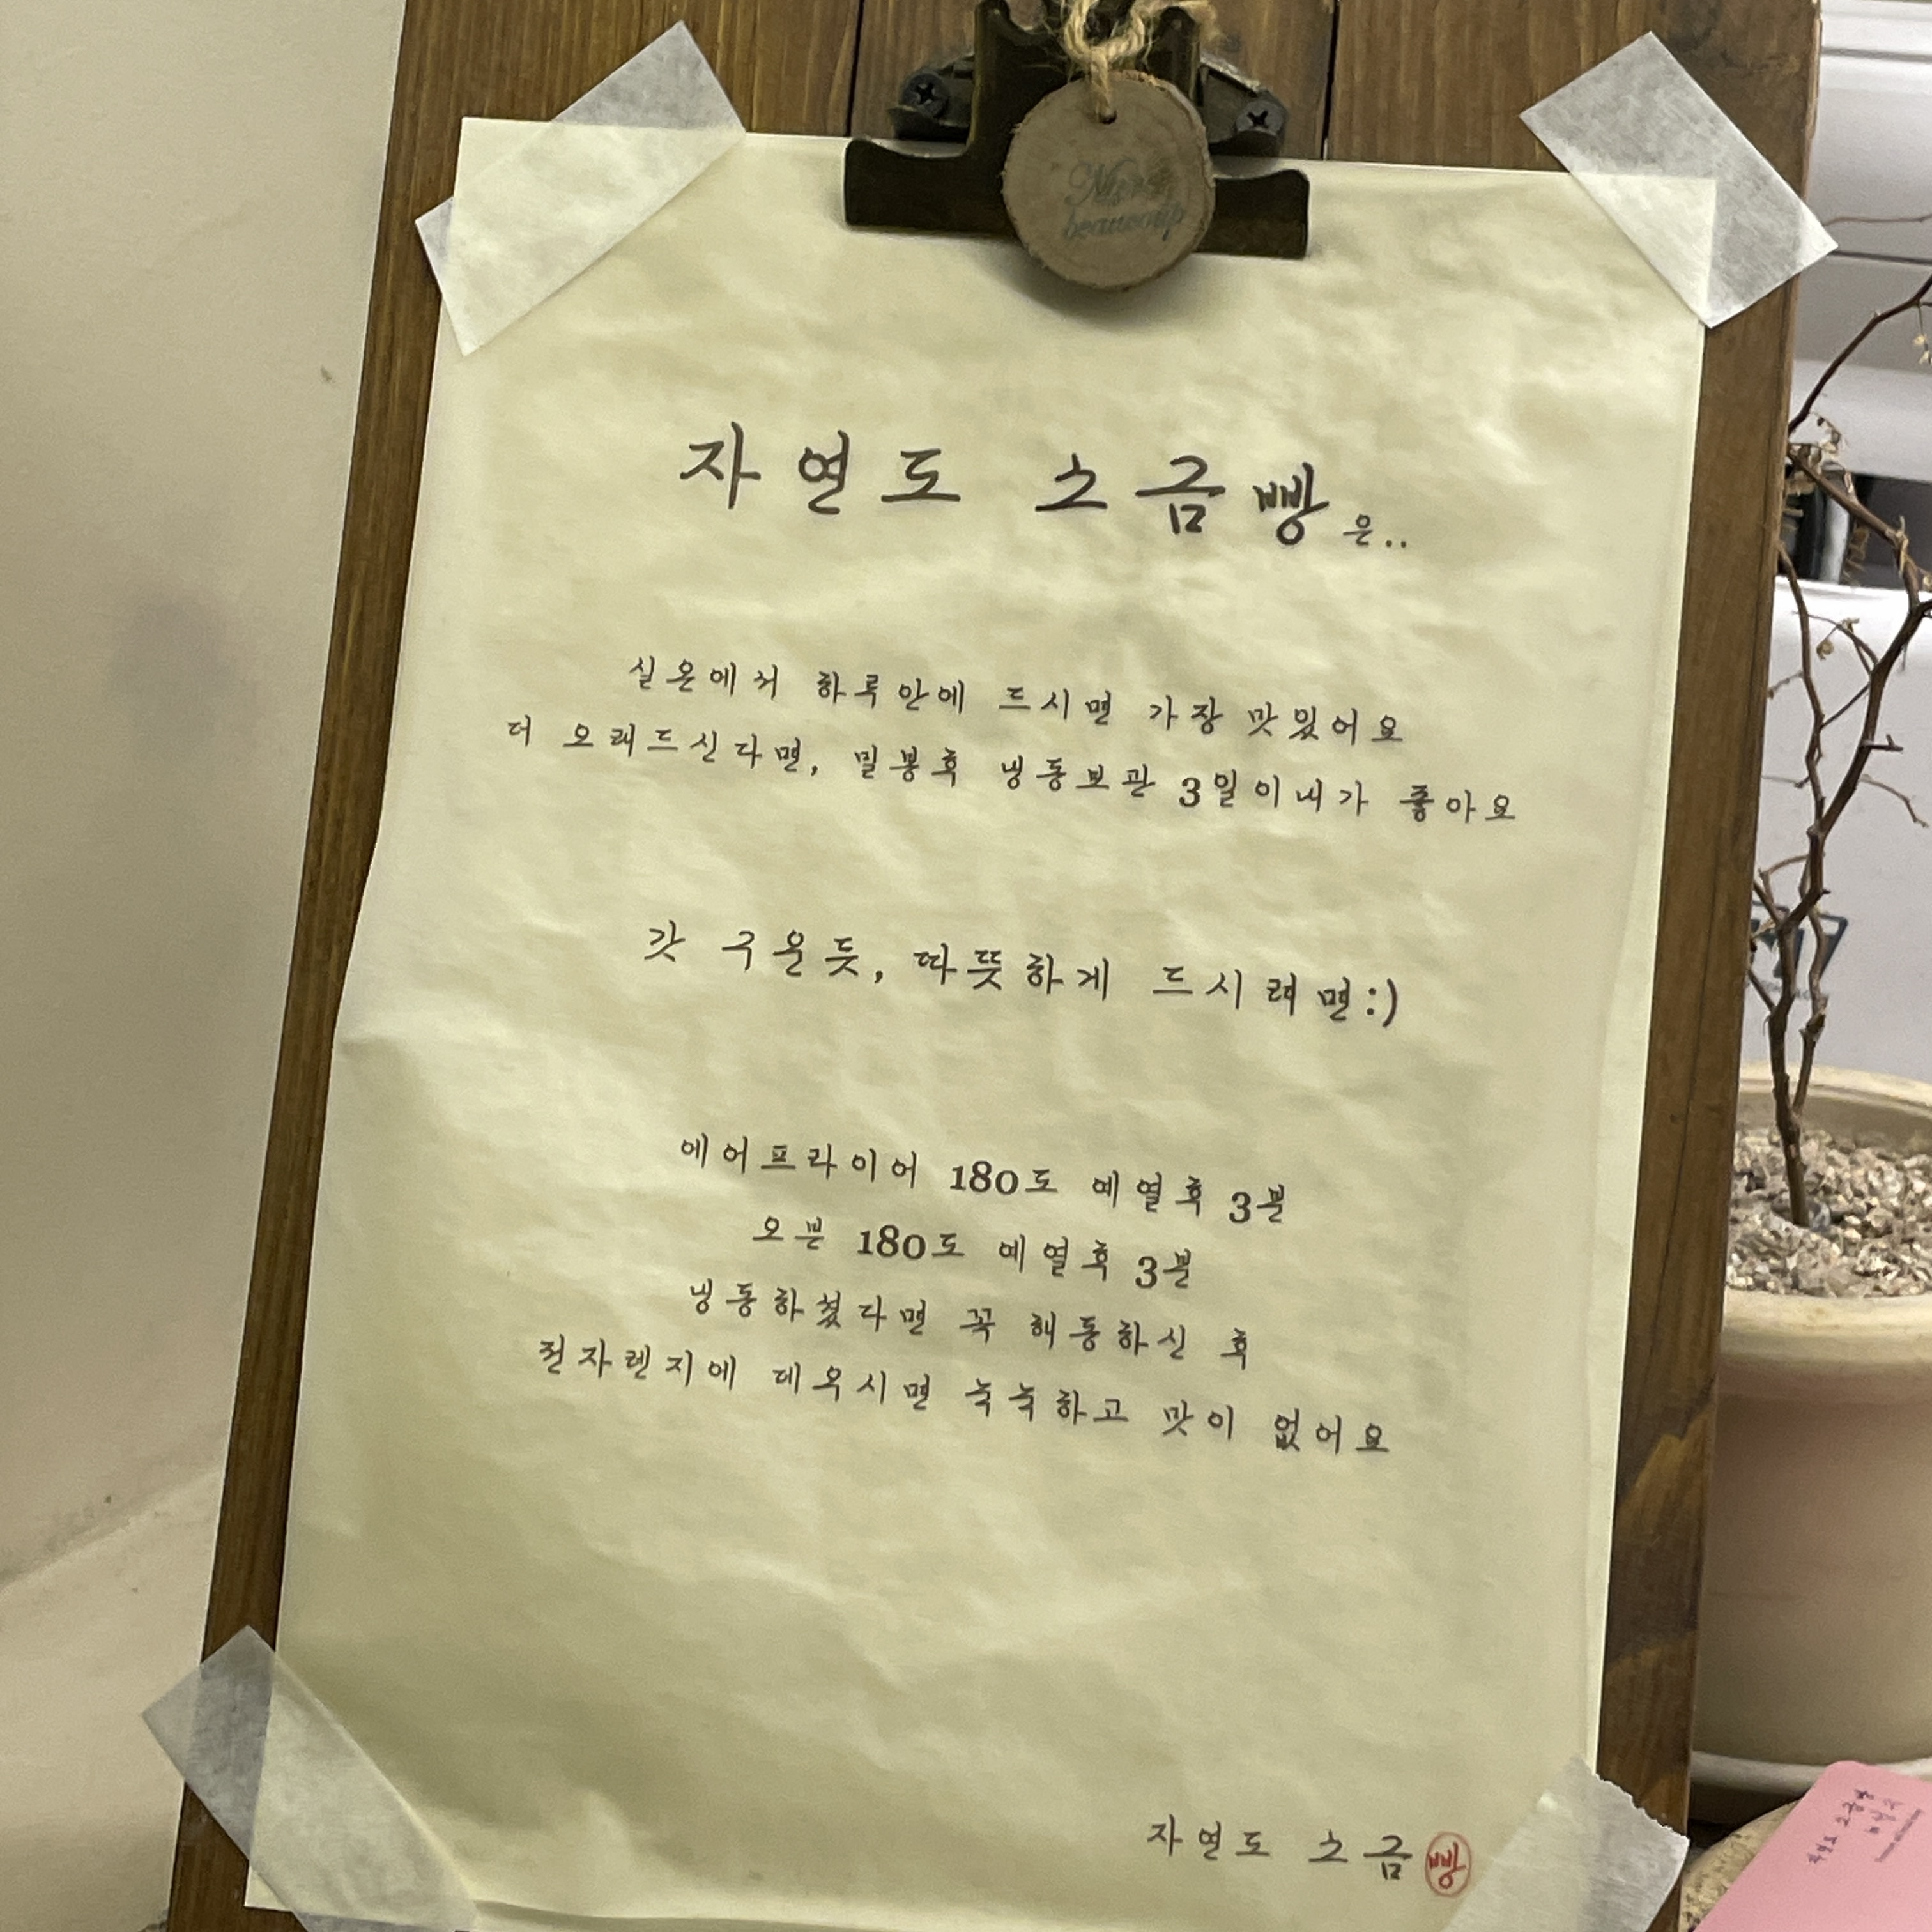 beaucoup
자연도 소금빵은..
실온에서 하루안에 드시면 가장 맛있어요
더 오래드신다면, 밀봉후 냉동보관 3일이내가 좋아요
갓 구운듯, 따뜻하게 드시려면:)
에어프라이어 180도 예열후 3분
오븐 180도 예열후 3분
냉동하셨다면 꼭 해동하신 후
전자렌지에 데우시면 눅눅하고 맛이 없어요
자연도 소금빵
자연도 소금빵